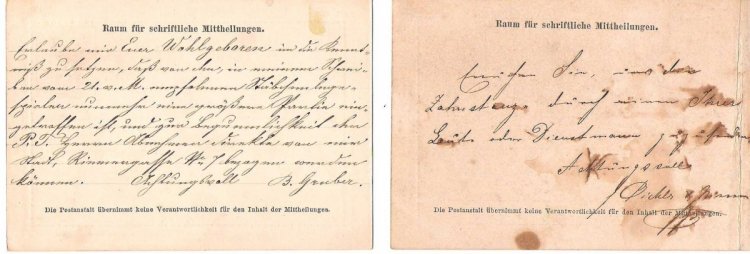 Raum für schriftliche Mittheilungen.
Erlaube mir Euer Wohlgeboren in die Kennt-
niß zu setzen, daß von den, in meinem Schrei-
ben vom 21. v. M. empfohlenen
nunmehr eine größere Partie ein-
getroffen ist, und zur Bequemlichkeit der
P. T. Herren Abnehmer direkte von mir
Stadt, Riemergasse No 7 bezogen werden
können. Achtungsvoll B. Gruber.
Die Postanstalt übernimmt keine Verantwortlichkeit für den Inhalt der Mittheilungen.
Raum für schriftliche Mittheilungen.
Sie, uns den
durch einen Ihrer
Leute oder Dienstmann
Achtungsvoll
Die Postanstalt übernimmt keine Verantwortlichkeit für den Inhalt der Mittheilungen.